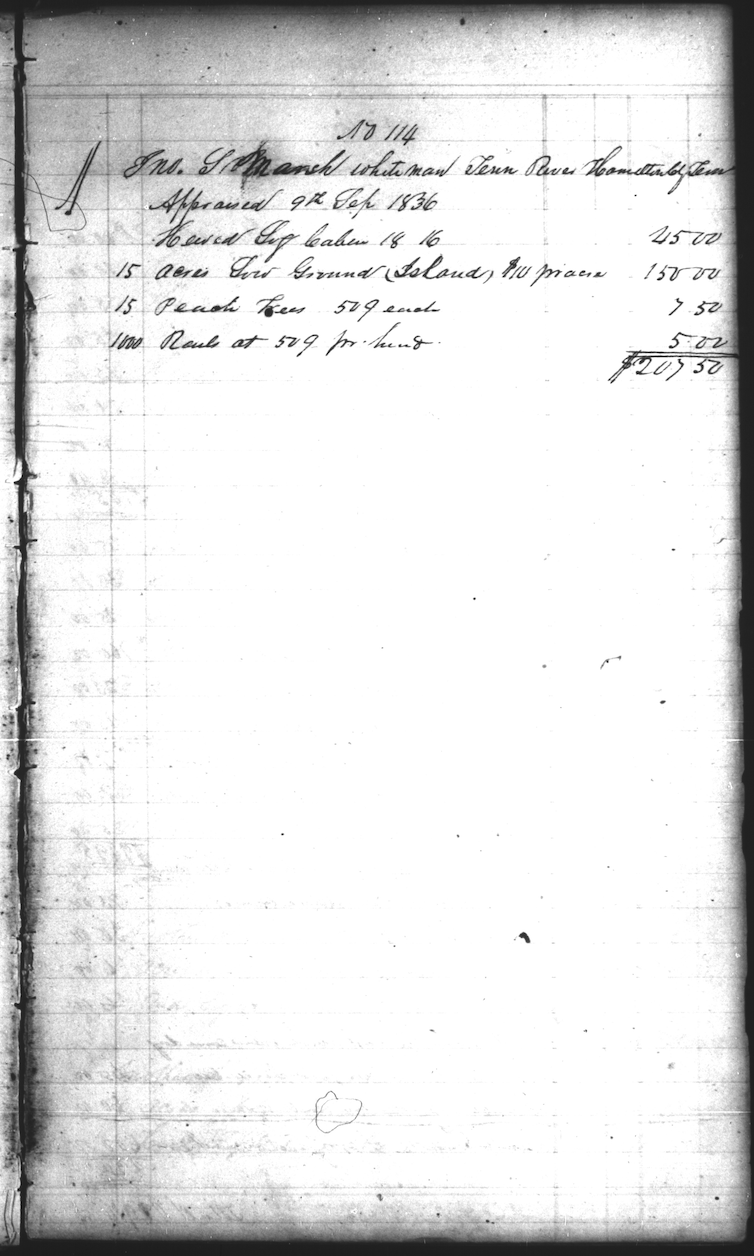 No 114
Jno. S. March white man Tenn River Hamilton Cty Tenn
Appraised 9th Sep 1836
Hewed Log Caben 18 16 45 00
15 Acres Low Ground (Island) $10 pr acre 150 00
15 Peach trees 50¢ each 7 50
1000 Rails at 50¢ pr. hund. 5 00
$207 50